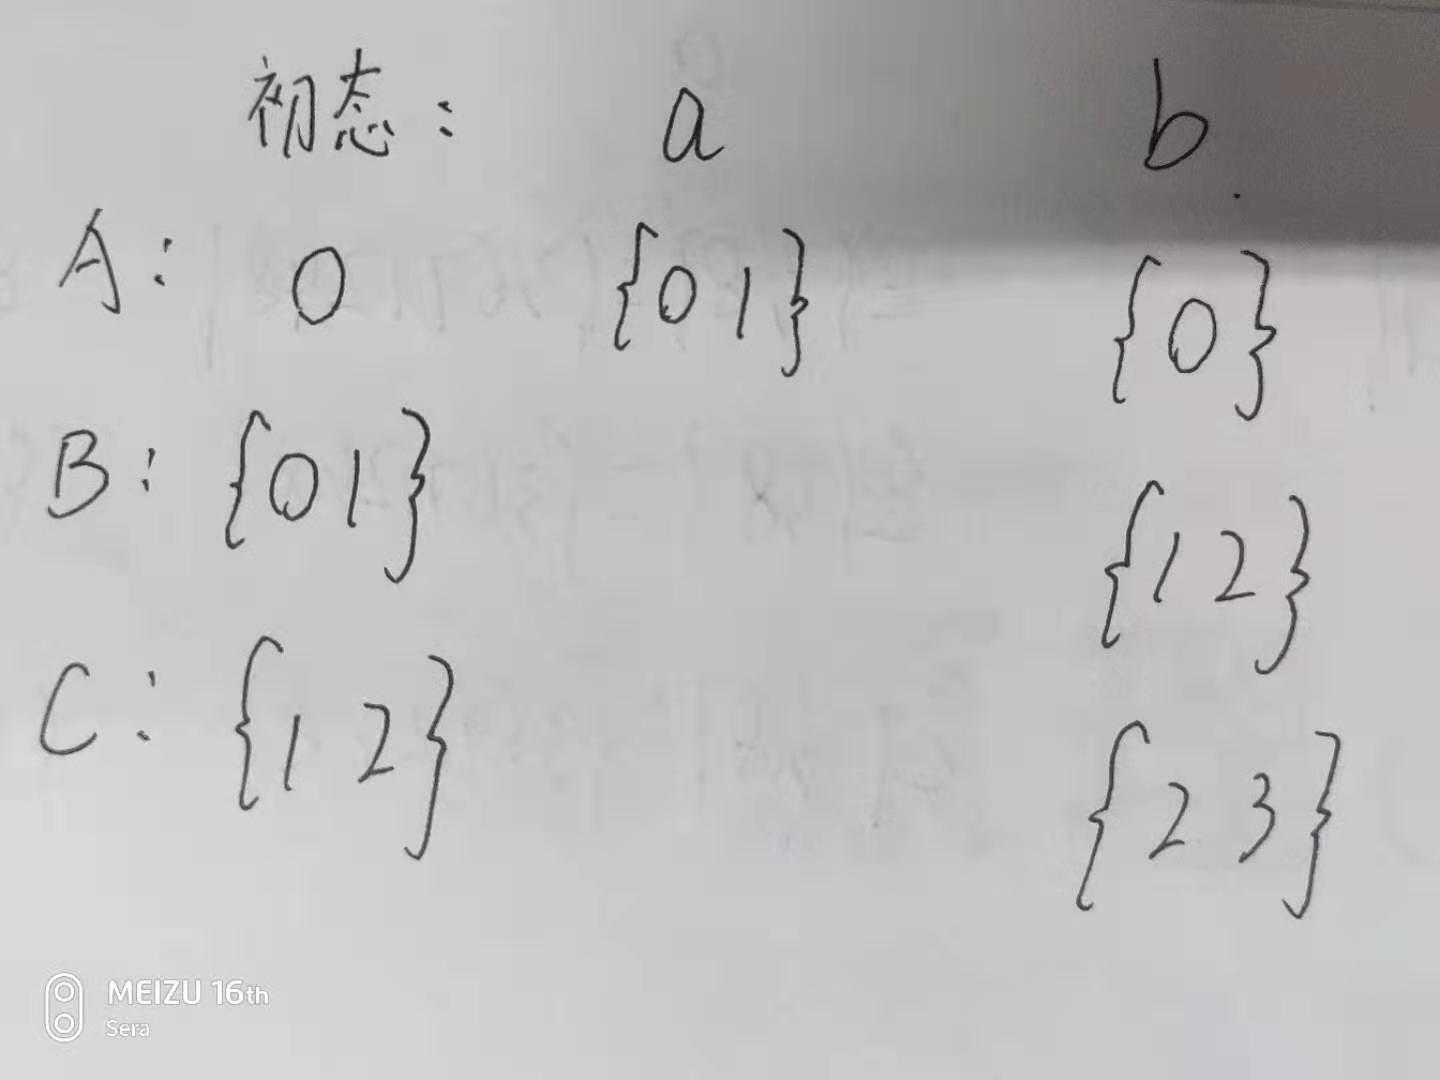 初态: a b
A: 0 {0 1} {0}
B: {0 1} {1 2}
C: {1 2} {2 3}
MEIZU 16th
Sera